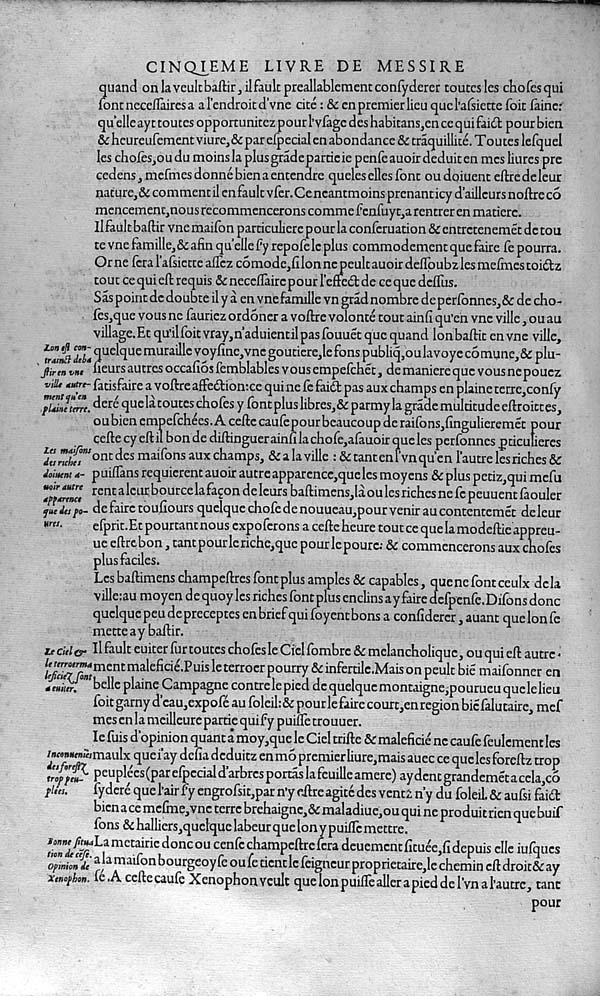 CINQIEME LIVRE DE MESSIRE
quand on la veult baſtir, il fault preallablement conſyderer toutes les choſes qui
ſont neceſſaires a a l'endroit d'vne cité: & en premier lieu que l'aſſiette ſoit ſaine:
qu'elle ayt toutes opportunitez pour l'vſage des habitans, en ce qui faict pour bien
& heureuſement viure, & par eſpecial en abondance & trãquillité. Toutes leſquel
les choſes, ou du moins la plus grãde partie ie penſe auoir deduit en mes liures pre
cedens, meſmes donné bien a entendre queles elles ſont ou doiuent eſtre de leur
nature, & comment il en fault vſer. Ce neantmoins prenant icy d'ailleurs noſtre cõ
mencement, nous recommencerons comme ſ'enſuyt, a rentrer en matiere.
Il fault baſtir vne maiſon particuliere pour la conſeruation & entretenemẽt de tou
te vne famille, & afin qu'elle ſ'y repoſe le plus commodement que faire ſe pourra.
Or ne ſera l'aſſiette aſſez cõmode, ſi lon ne peult auoir deſſoubz les meſmes toictz
tout ce qui eſt requis & neceſſaire pour l'effect de ce que deſſus.
Sãs point de doubte il y à en vne famille vn grãd nombre de perſonnes, & de cho-
ſes, que vous ne ſauriez ordõner a voſtre volonté tout ainſi qu'en vne ville, ou au
village. Et qu'il ſoit vray, n'aduient il pas ſouuẽt que quand lon baſtit en vne ville,
Lon eſt con-
trainct de ba
ſtir en vne
ville autre-
ment qu'en
plaine terre.
quelque muraille voyſine, vne goutiere, le fons publiq, ou la voye cõmune, & plu-
ſieurs autres occaſiõs ſemblables vous empeſchẽt, de maniere que vous ne pouez
ſatisfaire a voſtre affection: ce qui ne ſe faict pas aux champs en plaine terre, conſy
deré que là toutes choſes y ſont plus libres, & parmy la grãde multitude eſtroittes,
ou bien empeſchées. A ceſte cauſe pour beaucoup de raiſons, ſingulieremẽt pour
ceſte cy eſt il bon de diſtinguer ainſi la choſe, aſauoir que les perſonnes pticulieres
Les maiſons
des riches
doiuent a-
uoir autre
apparence
que des po-
ures.
ont des maiſons aux champs, & a la ville: & tant en l'vn qu'en l'autre les riches &
puiſſans requierent auoir autre apparence, que les moyens & plus petiz, qui meſu
rent a leur bource la façon de leurs baſtimens, là ou les riches ne ſe peuuent ſaouler
de faire touſiours quelque choſe de nouueau, pour venir au contentemẽt de leur
eſprit. Et pourtant nous expoſerons a ceſte heure tout ce que la modeſtie appreu-
ue eſtre bon, tant pour le riche, que pour le poure: & commencerons aux choſes
plus faciles.
Les baſtimens champeſtres ſont plus amples & capables, que ne ſont ceulx de la
ville: au moyen de quoy les riches ſont plus enclins a y faire deſpenſe. Diſons donc
quelque peu de preceptes en brief qui ſoyent bons a conſiderer, auant que lon ſe
mette a y baſtir.
Le Ciel &
le terroer ma
leficiez ſont
a euiter.
Il fault euiter ſur toutes choſes le Ciel ſombre & melancholique, ou qui eſt autre-
ment maleficié. Puis le terroer pourry & infertile. Mais on peult biẽ maiſonner en
belle plaine Campagne contre le pied de quelque montaigne; pourueu que le lieu
ſoit garny d'eau, expoſé au ſoleil: & pour le faire court, en region biẽ ſalutaire, meſ
mes en la meilleure partie qui ſ'y puiſſe trouuer.
Ie ſuis d'opinion quant à moy, que le Ciel triſte & maleficié ne cauſe ſeulement les
Inconueniẽs
des foreſtz
trop peu-
plées.
maulx que i'ay deſia deduitz en mõ premier liure, mais auec ce que les foreſtz trop
peuplées (par eſpecial d'arbres portãs la feuille amere) aydent grandemẽt a cela, cõ
ſyderé que l'air ſ'y engroſſit, par n'y eſtre agité des ventz n'y du ſoleil. & auſſi faict
bien a ce meſme, vne terre brehaigne, & maladiue, ou qui ne produit rien que buiſ
ſons & halliers, quelque labeur que lon y puiſſe mettre.
Bonne ſitua
tion de cẽſe.
Opinion de
Xenophon.
La metairie donc ou cenſe champeſtre ſera deuement ſituée, ſi depuis elle iuſques
a la maiſon bourgeoyſe ou ſe tient le ſeigneur proprietaire, le chemin eſt droit & ay
ſé. A ceſte cauſe Xenophon veult que lon puiſſe aller a pied de l'vn a l'autre, tant
pour